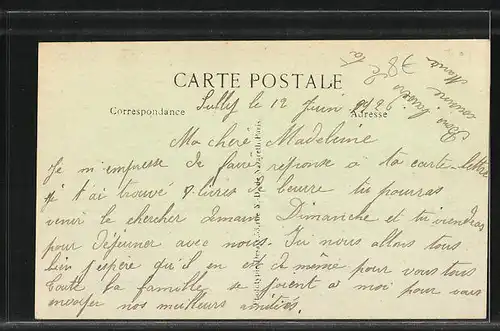 CARTE POSTALE
Correspondance
Adresse
Sully le 12 Juin 1926
Ma chère Madeleine
Je m'empresse de faire réponse a ta carte-lettre
je t'ai trouvé livres de beurre tu pourras
venir le chercher demain Dimanche et tu viendras
pour déjeuner avec nous. Ici nous allons tous
bien j'espère qu'il en est de même pour vous tous
toute la famille se joient a moi pour vous
envoyer nos meilleurs amitiés.
cousine